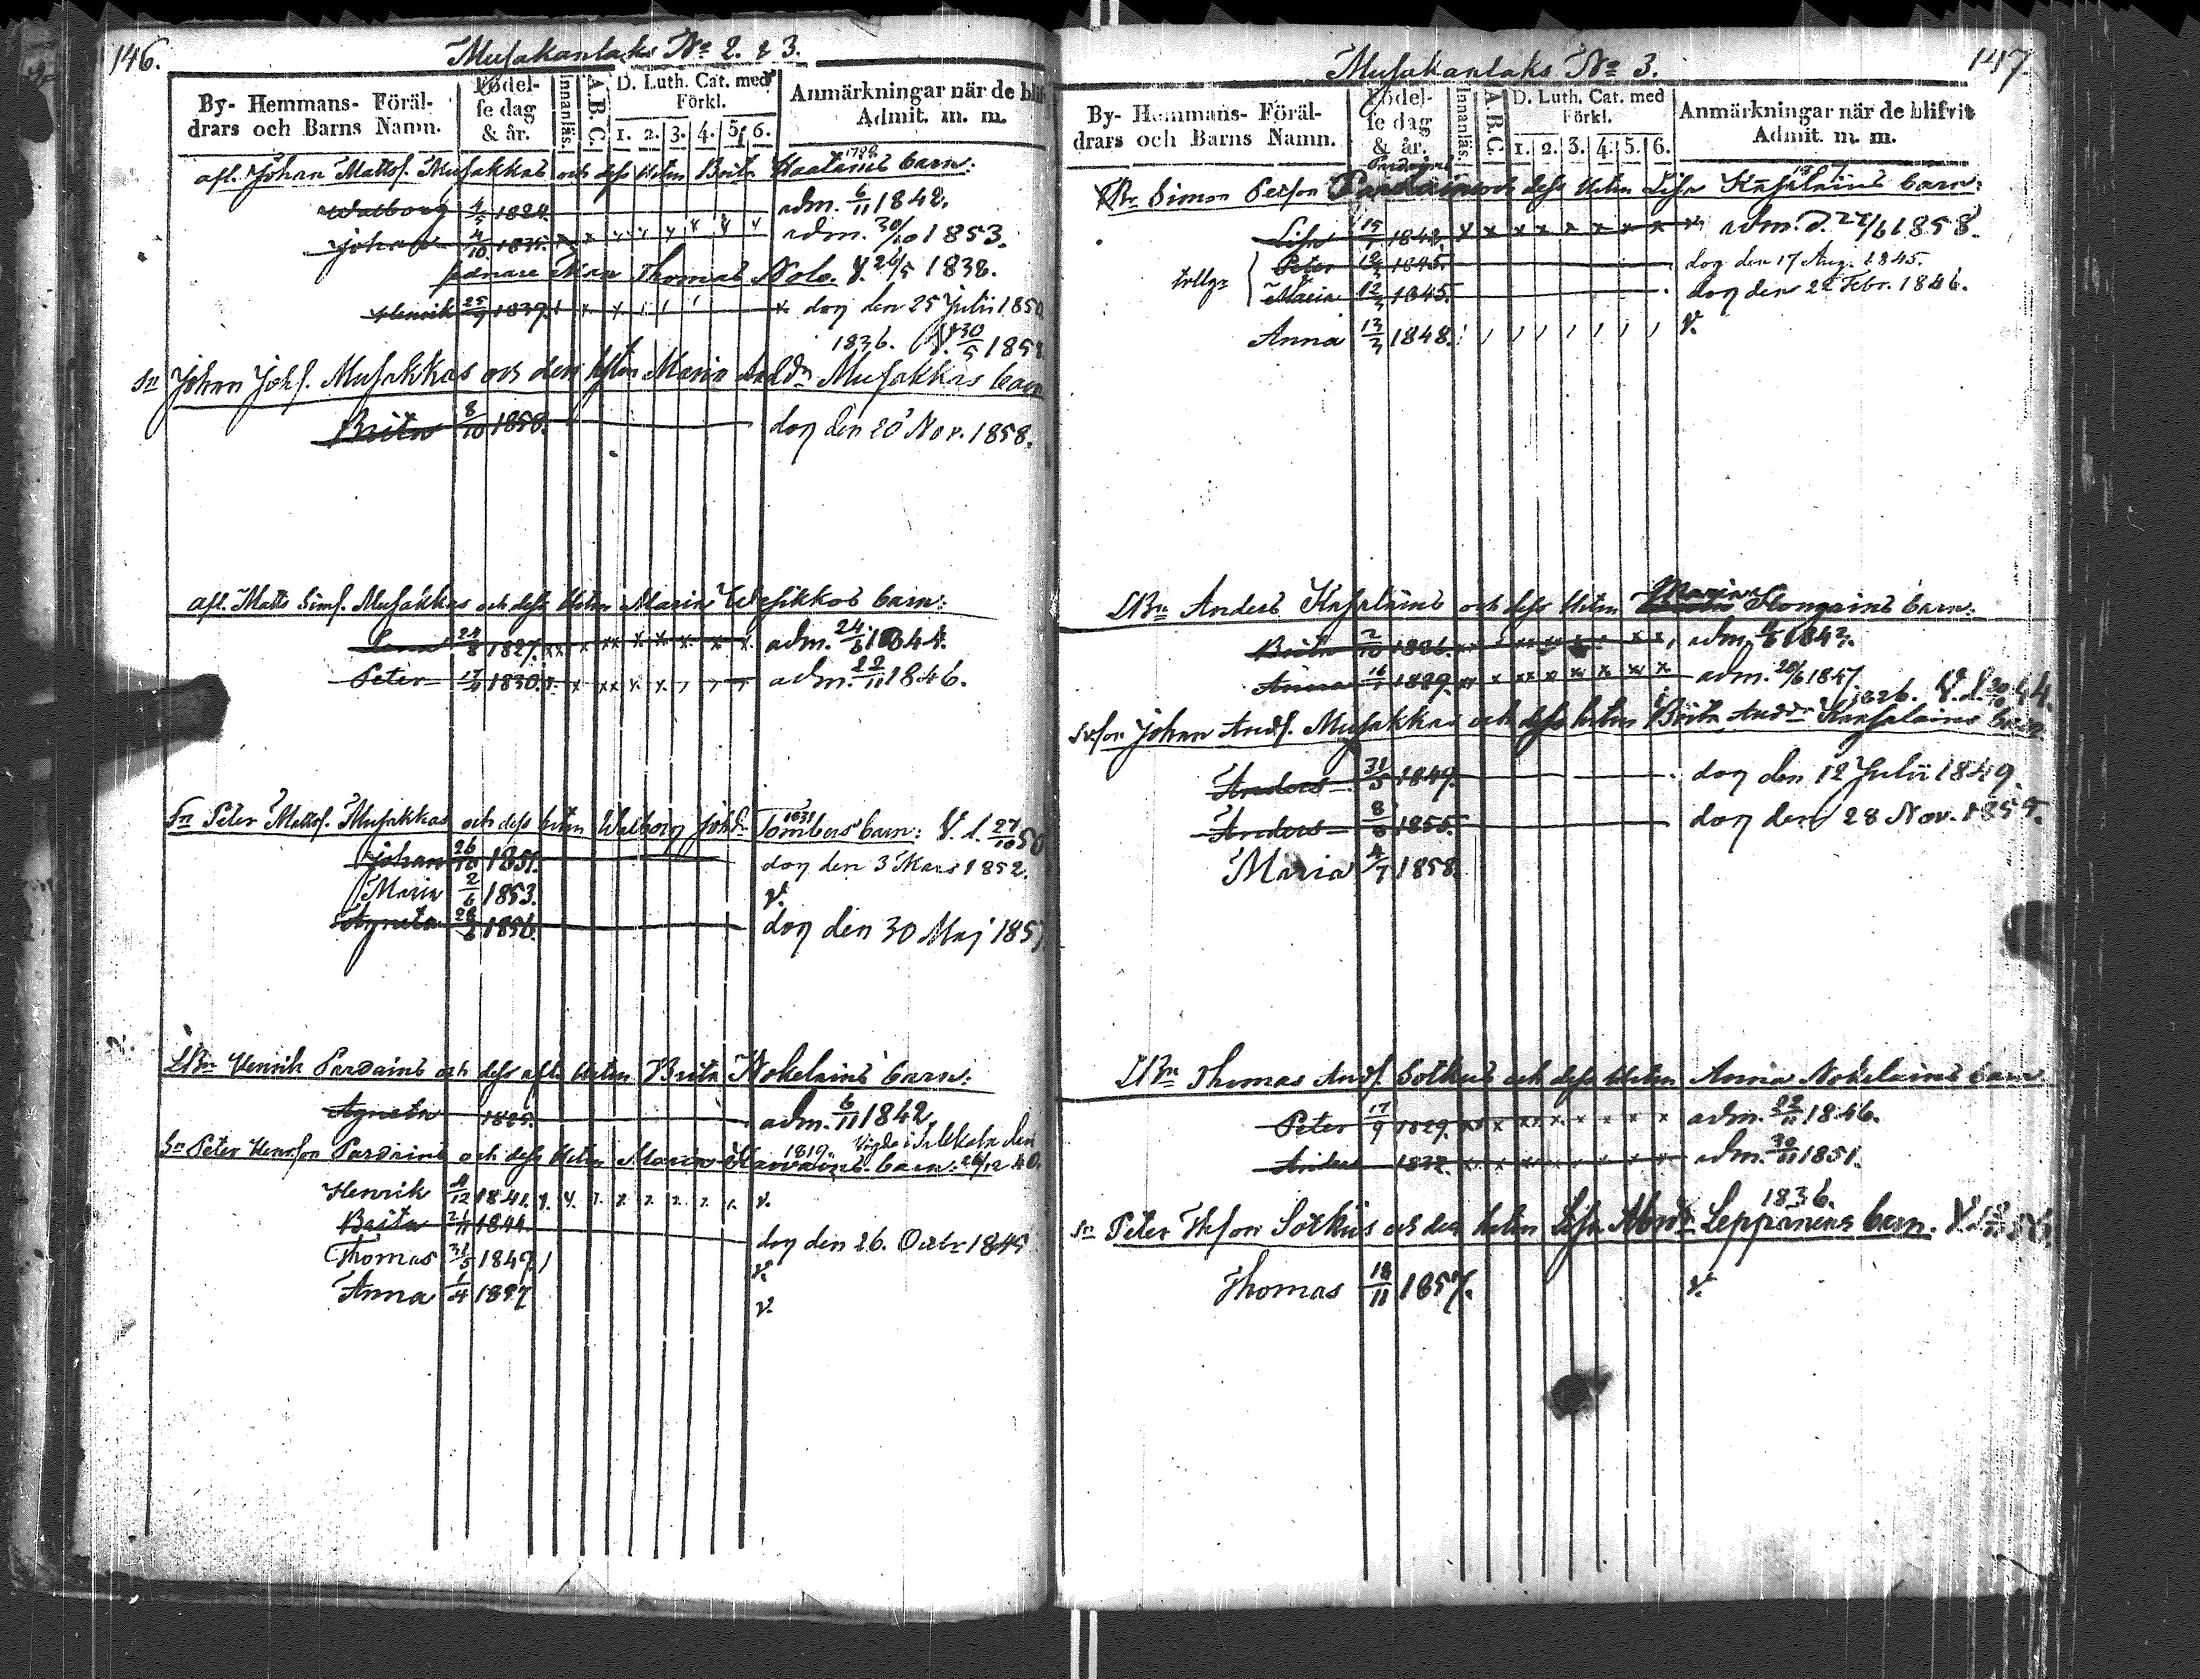 146.
Musakanlaks No 2. & 3.
By- Hemmans- Föräl-
drars och Barns Namn.
Födel-
se dag
& år.
Innanläs.
A.B.C.
D. Luth. Cat. med
Förkl.
1. 2. 3. 4. 5. 6.
Anmärkningar när de bli
Admit. m. m.
afl. Johan Matts. Musakkas och dess Hustru Brita barn:
Walborg 1824. adm. 6/11 1842.
Johan 4/10 1835. adm. 30/10 1853.
Thomas V. 26/5 1838.
Henrik 1837. dog den 25 Julii 1850
1836. V. 30/5 1858
Sn Johan Johs. Musakkas och dess Hustru Maria Musakkas barn
Brita 8/10 1858. dog den 20 Nov. 1858.
afl. Matts Sims. Musakkas och dess Hustru Maria Wesikkos barn:
Lena 24/8 1827. adm. 24/6 1844.
Peter 1830. adm. 22/11 1846.
Sn Peter Matts. Musakkas och dess Hustru Walborg Johsdr barn: V. d. 27/10 50
Johan 26/10 1851. dog den 3 Mars 1852.
Maria 2/6 1853. v.
Agneta 1856. dog den 30 Maj 185
Henrik Pardains och dess afl. Hustru Brita Nokelains barn:
Agneta 1825. adm. 6/11 1842
1819.
Sn Peter Henrson Pardains och dess Hustru Maria barn:
Henrik 4/12 1841. v.
Brita 1844. dog den 26. Octbr 1845
Thomas 31/5 1847. v.
Anna 1/4 1857 v.
147.
Musakanlaks No 3.
By- Hemmans- Föräl-
drars och Barns Namn.
Födel-
se dag
& år.
Innanläs.
A.B.C.
D. Luth. Cat. med
Förkl.
1. 2. 3. 4. 5. 6.
Anmärkningar när de blifvit
Admit. m. m.
Simon Persson och dess Hustru Lisa Kasalains barn:
Lisa 1842. adm. d. 27/6 1858.
Peter 1845. dog den 17 Aug. 1845.
Maria 1845. dog den 22 Febr. 1846.
Anna 13/3 1848. v.
Anders Kasalains och dess Hustru Maria barn:
Brita 2/10 1826. adm. 1842.
Anna 16/1 1829. adm. 20/6 1847
1826.
Johan Ands. Musakkas och dess Hustru Brita Andsdr Kasalains barn
Anders 31/5 1849. dog den 12 Julii 1849.
Anders 1855. dog den 28 Nov. 1855.
Maria 4/7 1858.
Thomas Ands. Sotkus och dess Hustru Anna Nokelains barn
Peter 17/9 1829. adm. 22/11 1846.
Anders 1832. adm. 1851.
1836.
Sn Peter Thsson Sotkus och dess Hustru Lisa Leppänens barn.
Thomas 18/11 1857. v.